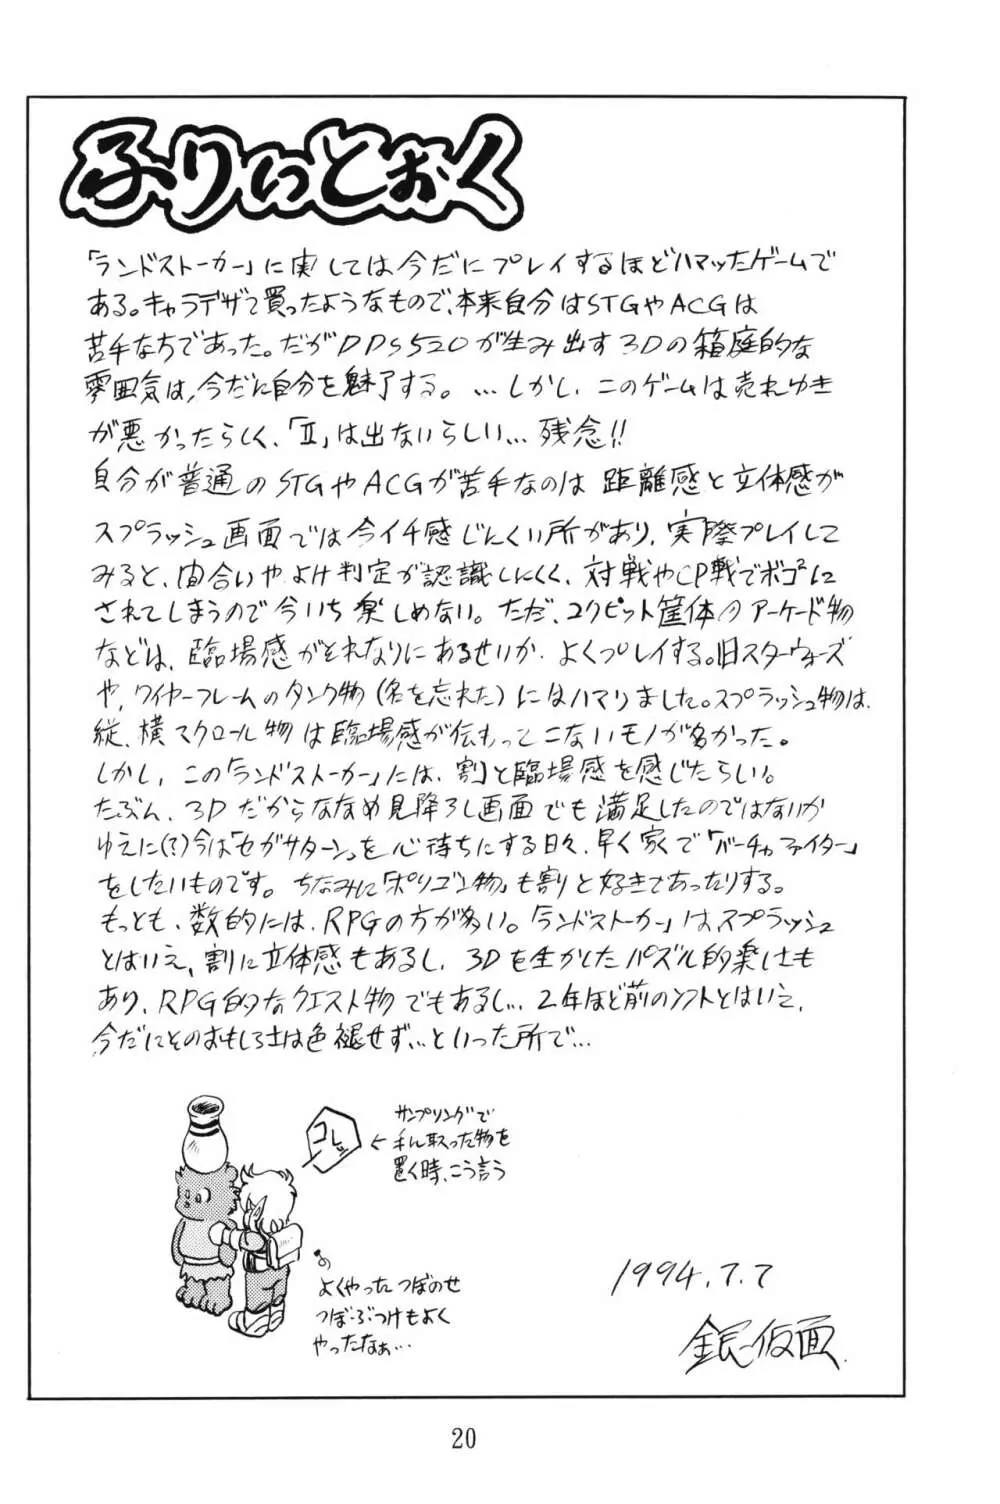 ふりぃとぉく
「ランドストーカー」に実しては今だにプレイするほどハマッたゲームで
ある。キャラデザで買ったようなもので、本来自分はSTGやACGは
苦手なちであった。だがDDS520が生み出す3Dの箱庭的な
雰囲気は、今だに自分を魅了する。…しかし、このゲームは売れゆき
が悪かったらしく、「Ⅱ」は出ないらしい…残念!!
自分が普通のSTGやACGが苦手なのは距離感と立体感が
スプラッシュ画面では今イチ感じにくい所があり、実際プレイして
みると、間合いやよけ判定が認識しにくく、対戦やCP戦でボコボコに
されてしまうので今いち楽しめない。ただ、コクピット筐体のアーケード物
などは、臨場感がそれなりにあるせいか、よくプレイする。旧スターウォーズ
や、ワイヤーフレームのタンク物(名を忘れた)にはハマりました。スプラッシュ物は、
縦、横スクロール物は臨場感が伝わってこないモノが多かった。
しかし、この「ランドストーカー」には、割と臨場感を感じたらしい。
たぶん、3Dだからななめ見降ろし画面でも満足したのではないか
ゆえに(?)今は「セガサターン」を心待ちにする日々、早く家で「バーチャファイター」
をしたいものです。ちなみに「ポリゴン物」も割と好きであったりする。
もっとも、数的には、RPGの方が多い。「ランドストーカー」は、スプラッシュ
とはいえ、割に立体感もあるし、3Dを生かしたパズル的楽しさも
あり、RPG的なクエスト物でもあるし…2年ほど前のソフトとはいえ、
今だにそのおもしろさは色褪せず…といった所で…
コレッ
←サンプリングで
手に取った物を
置く時、こう言う
よくやったつぼのせ
つぼぶつけもよく
やったなぁ…
1994.7.7
銀仮面
20